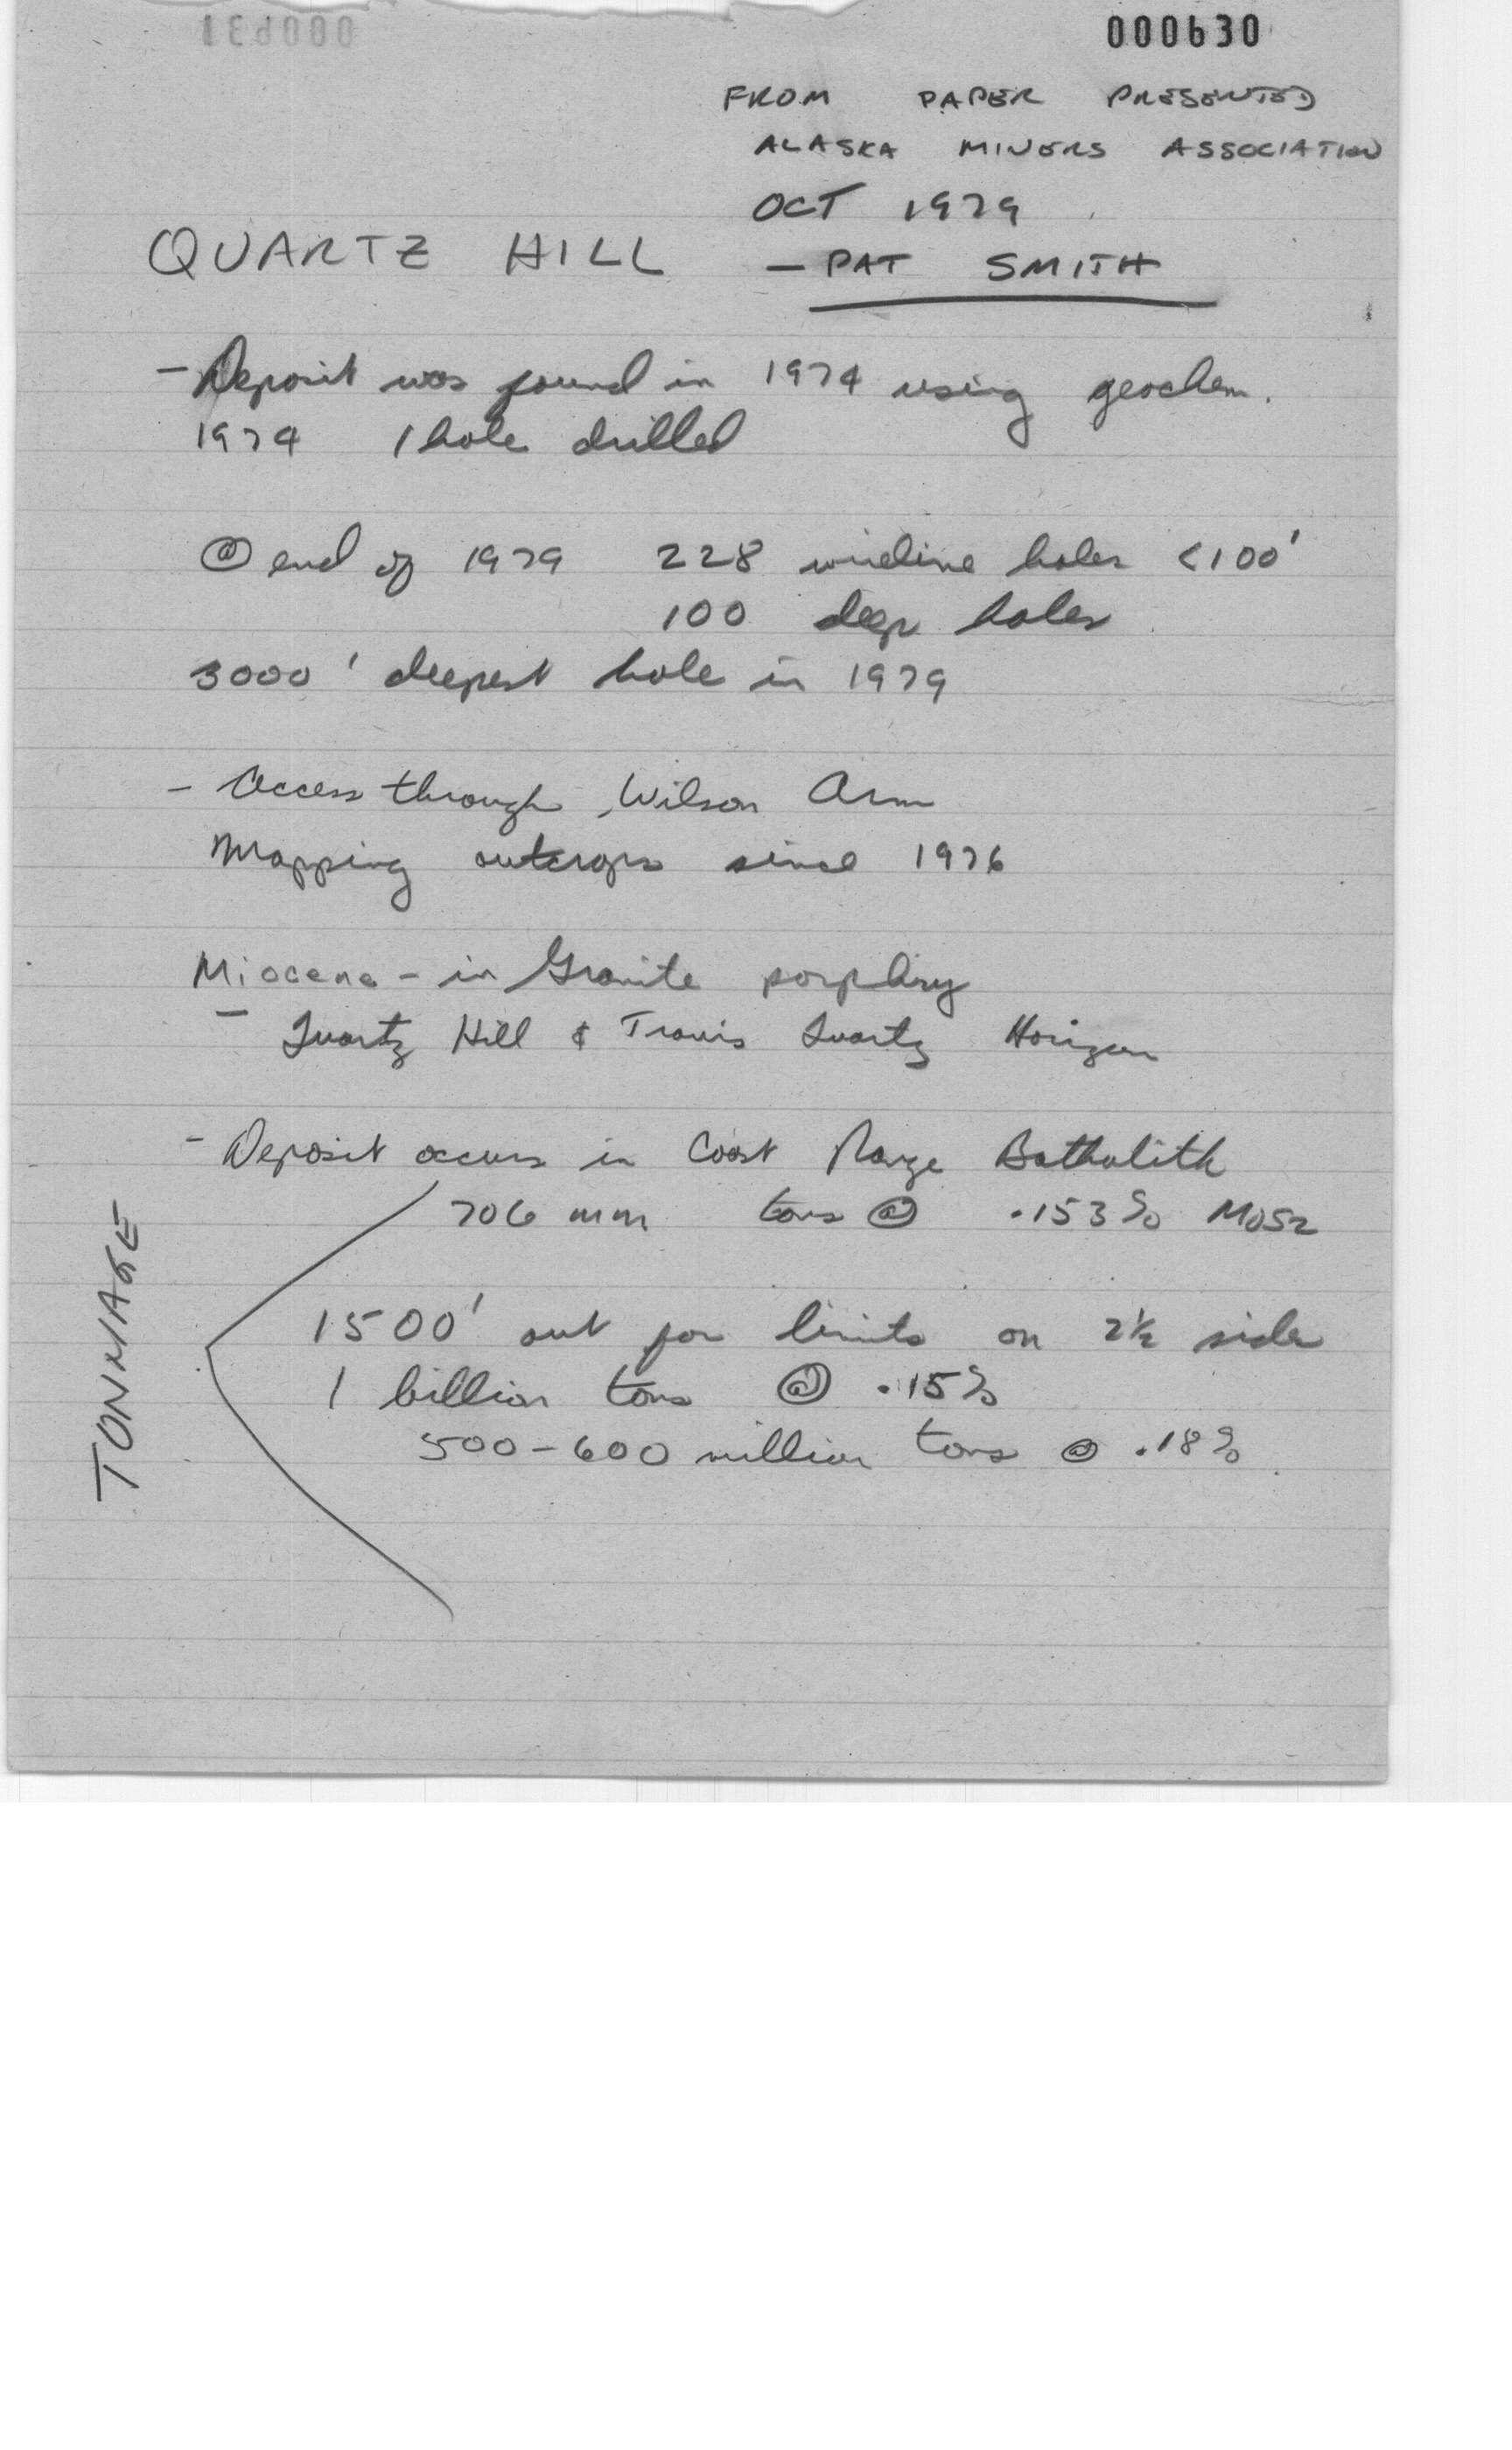 000630
FROM PAPER PRESENTED
ALASKA MINERS ASSOCIATION
OCT 1979
QUARTZ HILL - PAT SMITH
- Deposit was found in 1974 using geochem.
1974 1 hole drilled
@ end of 1979 228 wireline holes <100'
100 deep holes
3000' deepest hole in 1979
- Access through Wilson Arm
Mapping outcrops since 1976
Miocene - in Granite porphry
- Quartz Hill & Travis Quartz Horizon
- Deposit occurs in Coast Range Batholith
706 mm tons @ .153% MoS2
TONNAGE
1500' out for limits on 2½ side
1 billion tons @ .15%
500-600 million tons @ .18%